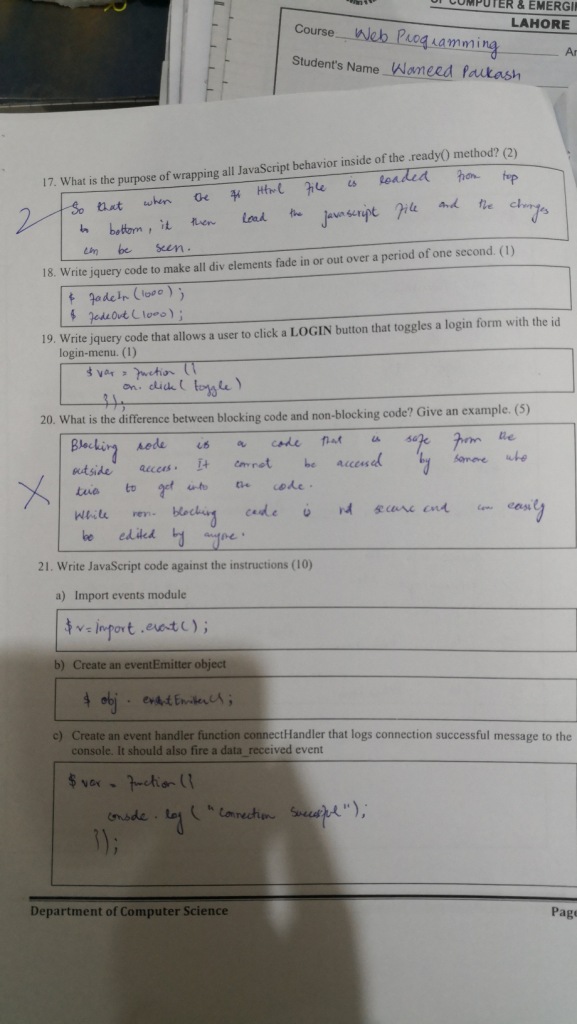 OF COMPUTER & EMERGI
LAHORE
Course Web Programming
Student's Name Waneed Parkash
17. What is the purpose of wrapping all JavaScript behavior inside of the .ready() method? (2)
2
So that when the Html file is loaded from top
to bottom, it then load the javascript file and the changes
can be seen.
18. Write jquery code to make all div elements fade in or out over a period of one second. (1)
$ fadeIn (1000);
$ fadeOut (1000);
19. Write jquery code that allows a user to click a LOGIN button that toggles a login form with the id
login-menu. (1)
$ var = function ({
on. click ( toggle )
});
20. What is the difference between blocking code and non-blocking code? Give an example. (5)
Blocking code is a code that is safe from the
outside access. It cannot be accessed by someone who
tries to get into the code.
While non-blocking code is not secure and can easily
be edited by anyone.
21. Write JavaScript code against the instructions (10)
a) Import events module
$v=import.event();
b) Create an eventEmitter object
$ obj. eventEmitter();
c) Create an event handler function connectHandler that logs connection successful message to the
console. It should also fire a data_received event
$ var = function ({
console.log ("connection successful");
});
Department of Computer Science
Page